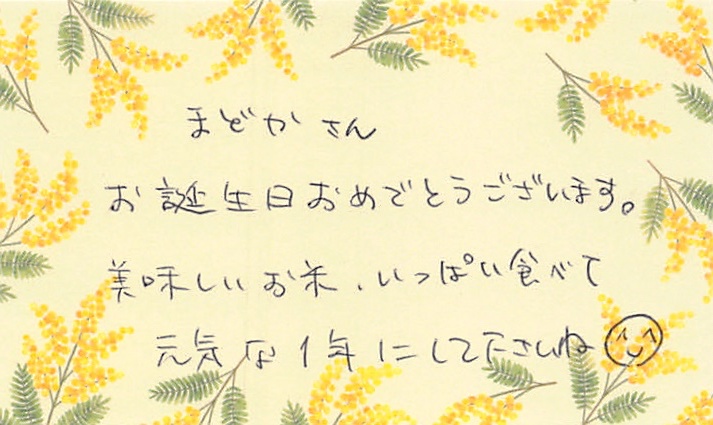 まどかさん
お誕生日おめでとうございます。
美味しいお米、いっぱい食べて
元気な1年にしてくださいね